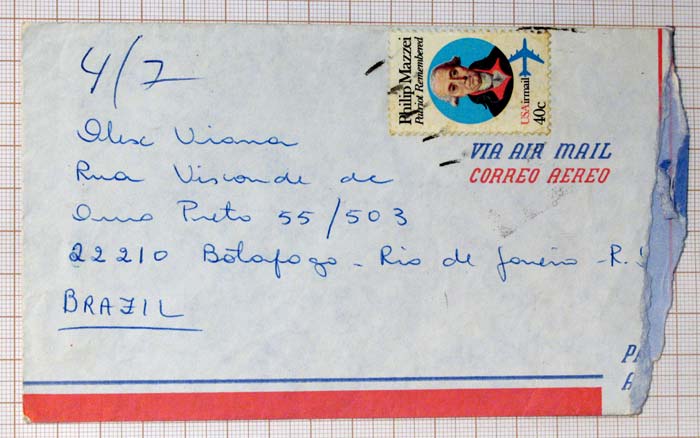 4/7
Philip Mazzei
Patriot Remembered
USAirmail
40c
VIA AIR MAIL
CORREO AEREO
Alex Viana
Rua Visconde de
Ouro Preto 55/503
22210 Botafogo - Rio de Janeiro - R.J
BRAZIL